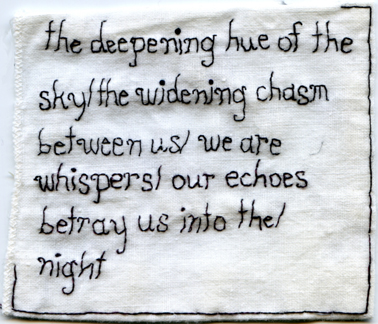 the deepening hue of the
sky/the widening chasm
between us/ we are
whispers/ our echoes
betray us into the/
night